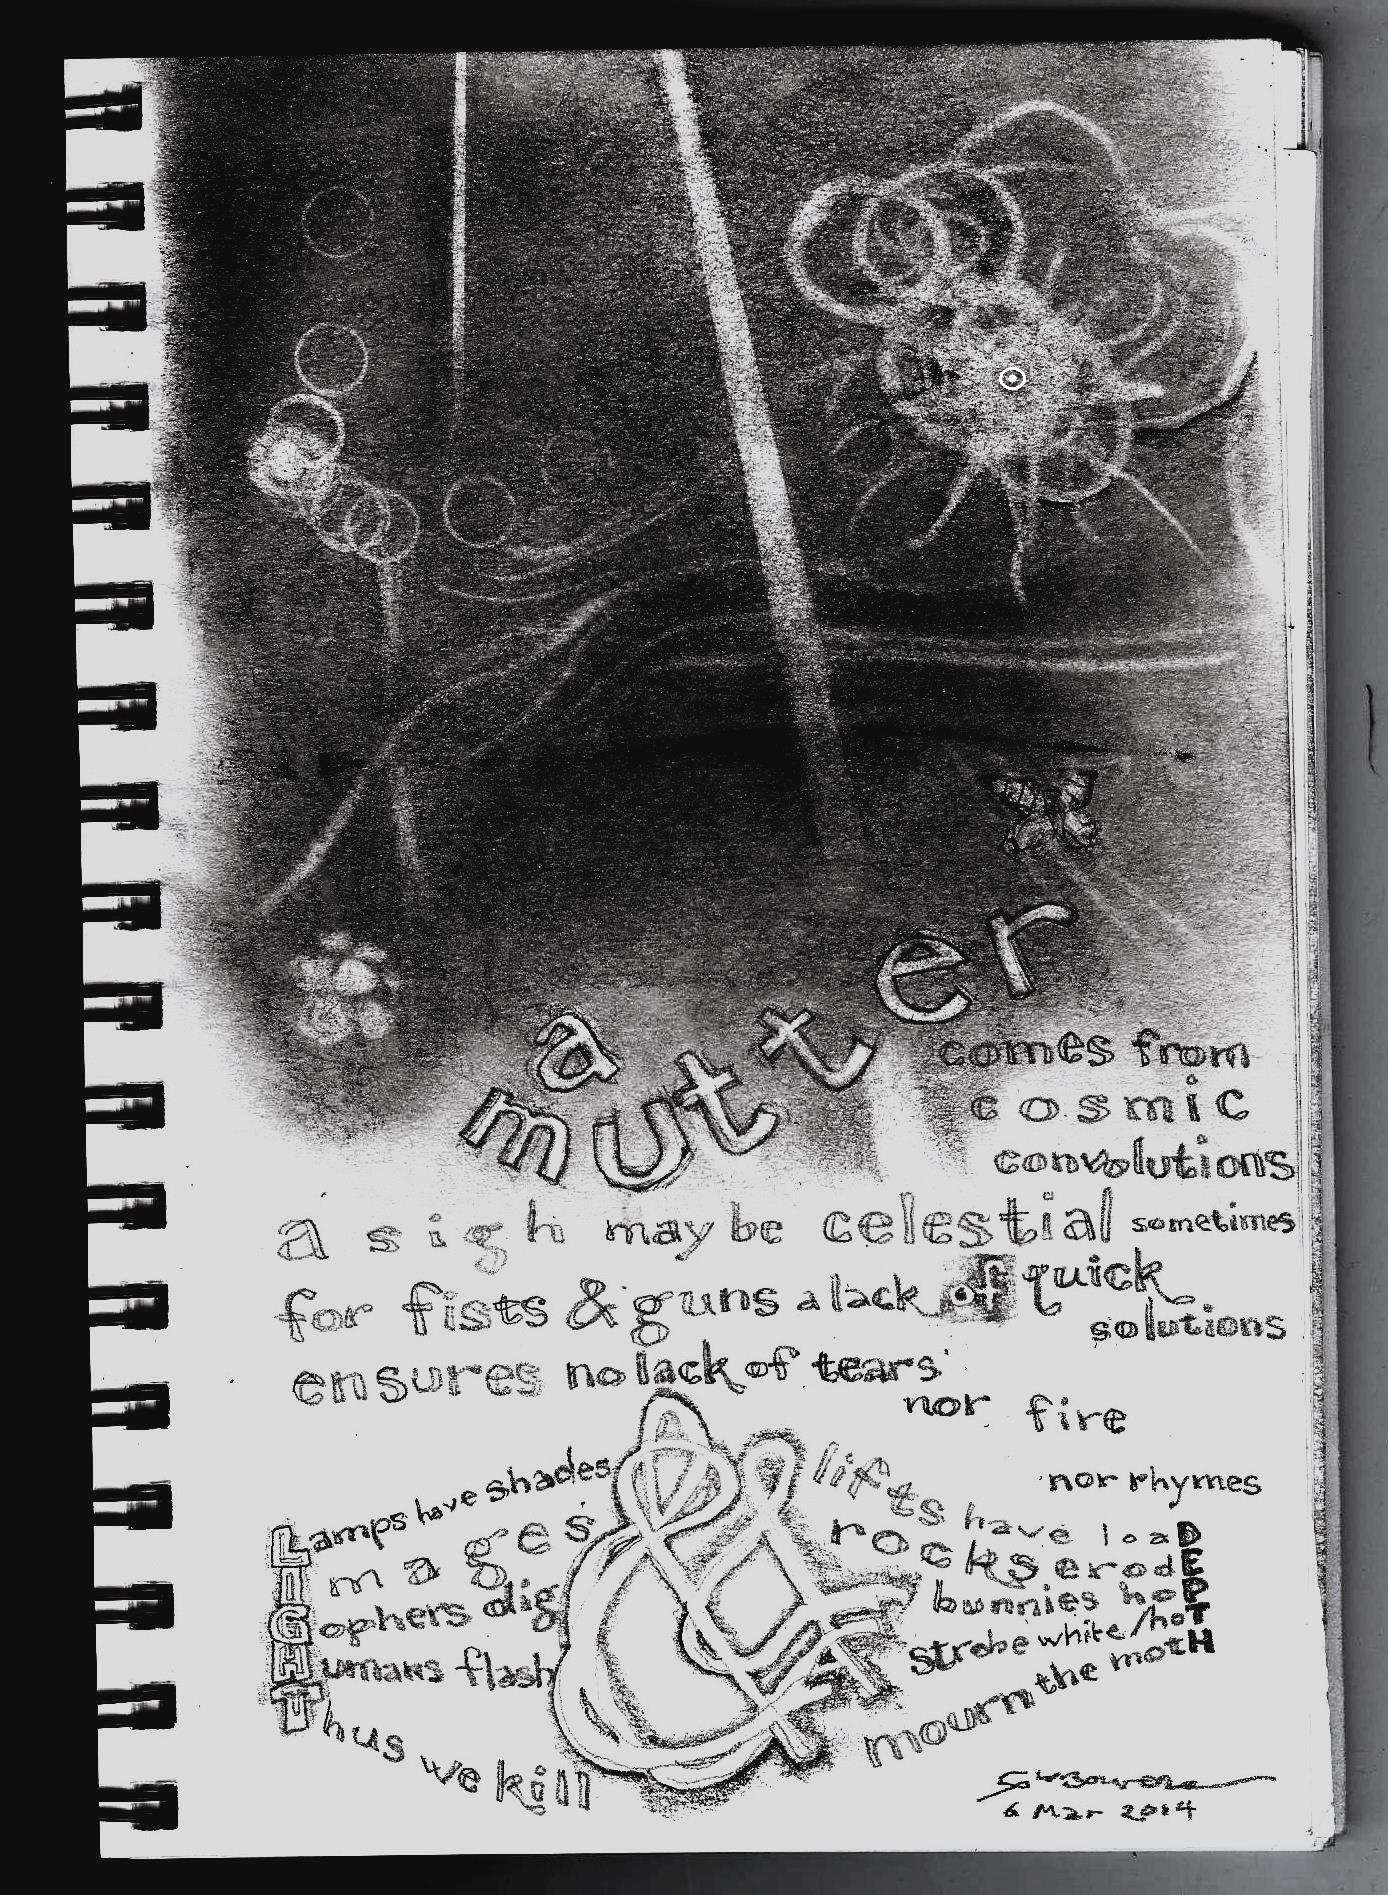 a
mutter
comes from
cosmic
convolutions
a sigh may be celestial sometimes
for fists & guns a lack of quick
solutions
ensures no lack of tears
nor fire
nor rhymes
Lamps have shades
Images
Gophers dig
Humans flash
Thus we kill
&
lifts have loaD
rocks erodE
bunnies hoP
strobe white/hoT
mourn the motH
6 Mar 2014